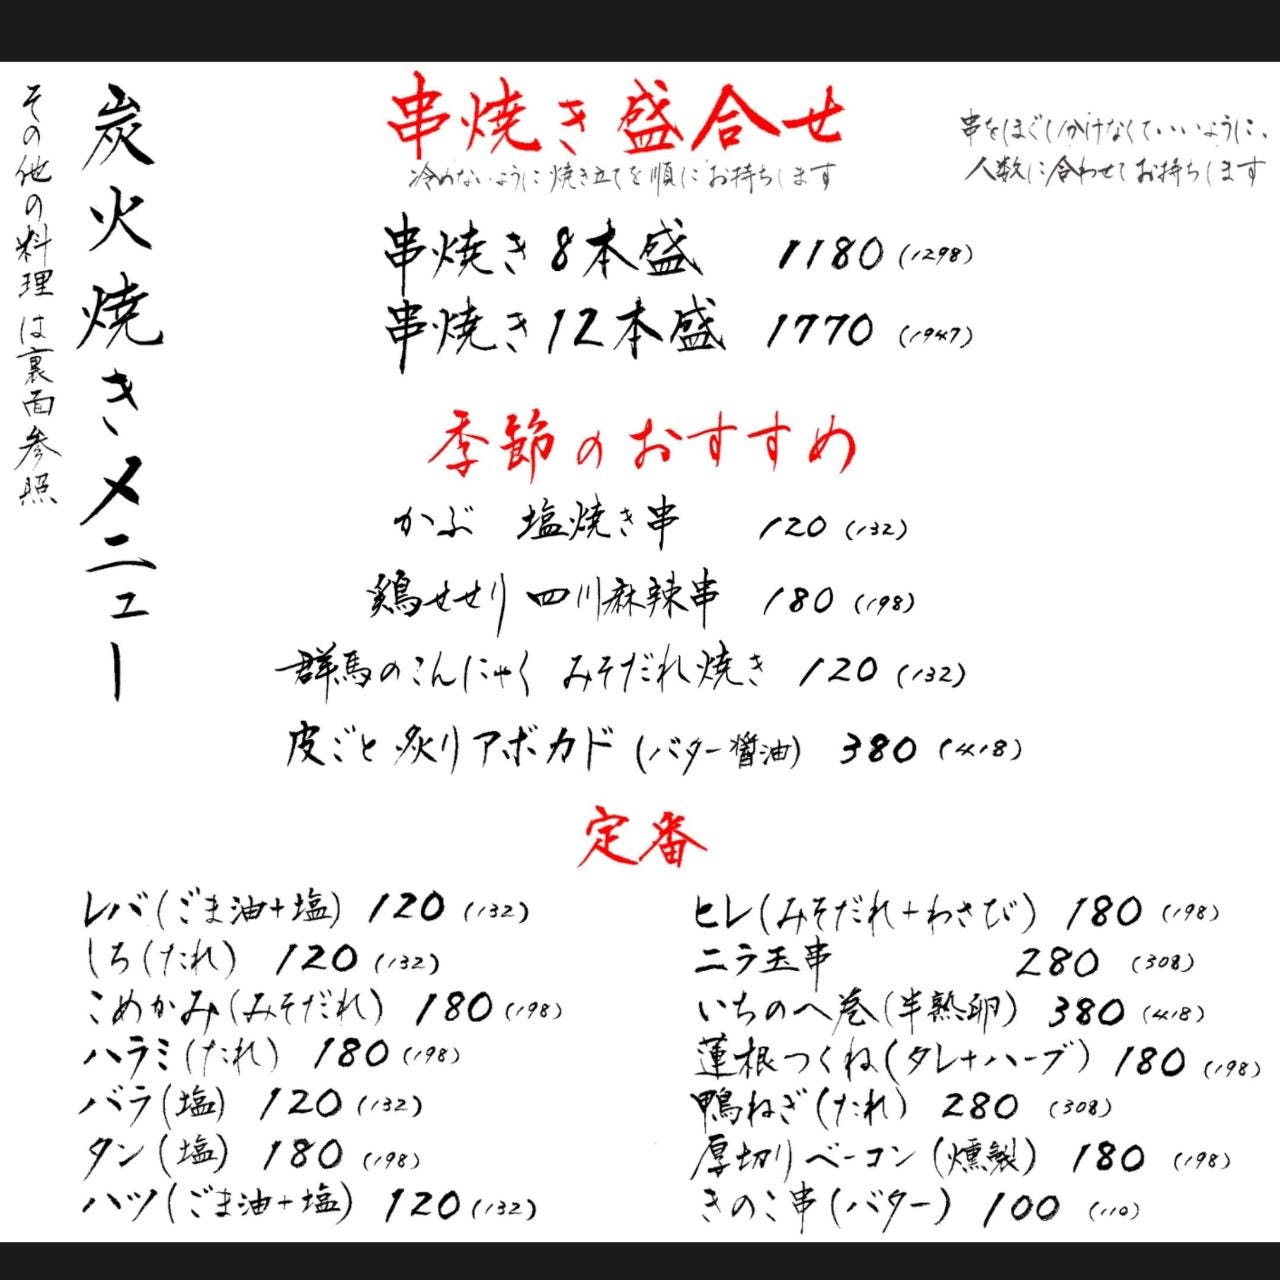 炭火焼きメニュー
その他の料理は裏面参照
串焼き盛合せ
冷めないように焼き立てを順にお持ちします
串をほぐし分けなくていいように、
人数に合わせてお持ちします
串焼き8本盛 1180 (1298)
串焼き12本盛 1770 (1947)
季節のおすすめ
かぶ 塩焼き串 120 (132)
鶏せせり 四川麻辣串 180 (198)
群馬のこんにゃく みそだれ焼き 120 (132)
皮ごと炙りアボカド (バター醤油) 380 (418)
定番
レバ(ごま油+塩) 120 (132)
しろ(たれ) 120 (132)
こめかみ(みそだれ) 180 (198)
ハラミ(たれ) 180 (198)
バラ(塩) 120 (132)
タン(塩) 180 (198)
ハツ(ごま油+塩) 120 (132)
ヒレ(みそだれ+わさび) 180 (198)
ニラ玉串 280 (308)
いちのへ巻(半熟卵) 380 (418)
蓮根つくね(タレ+ハーブ) 180 (198)
鴨ねぎ(たれ) 280 (308)
厚切りベーコン(燻製) 180 (198)
きのこ串(バター) 100 (110)